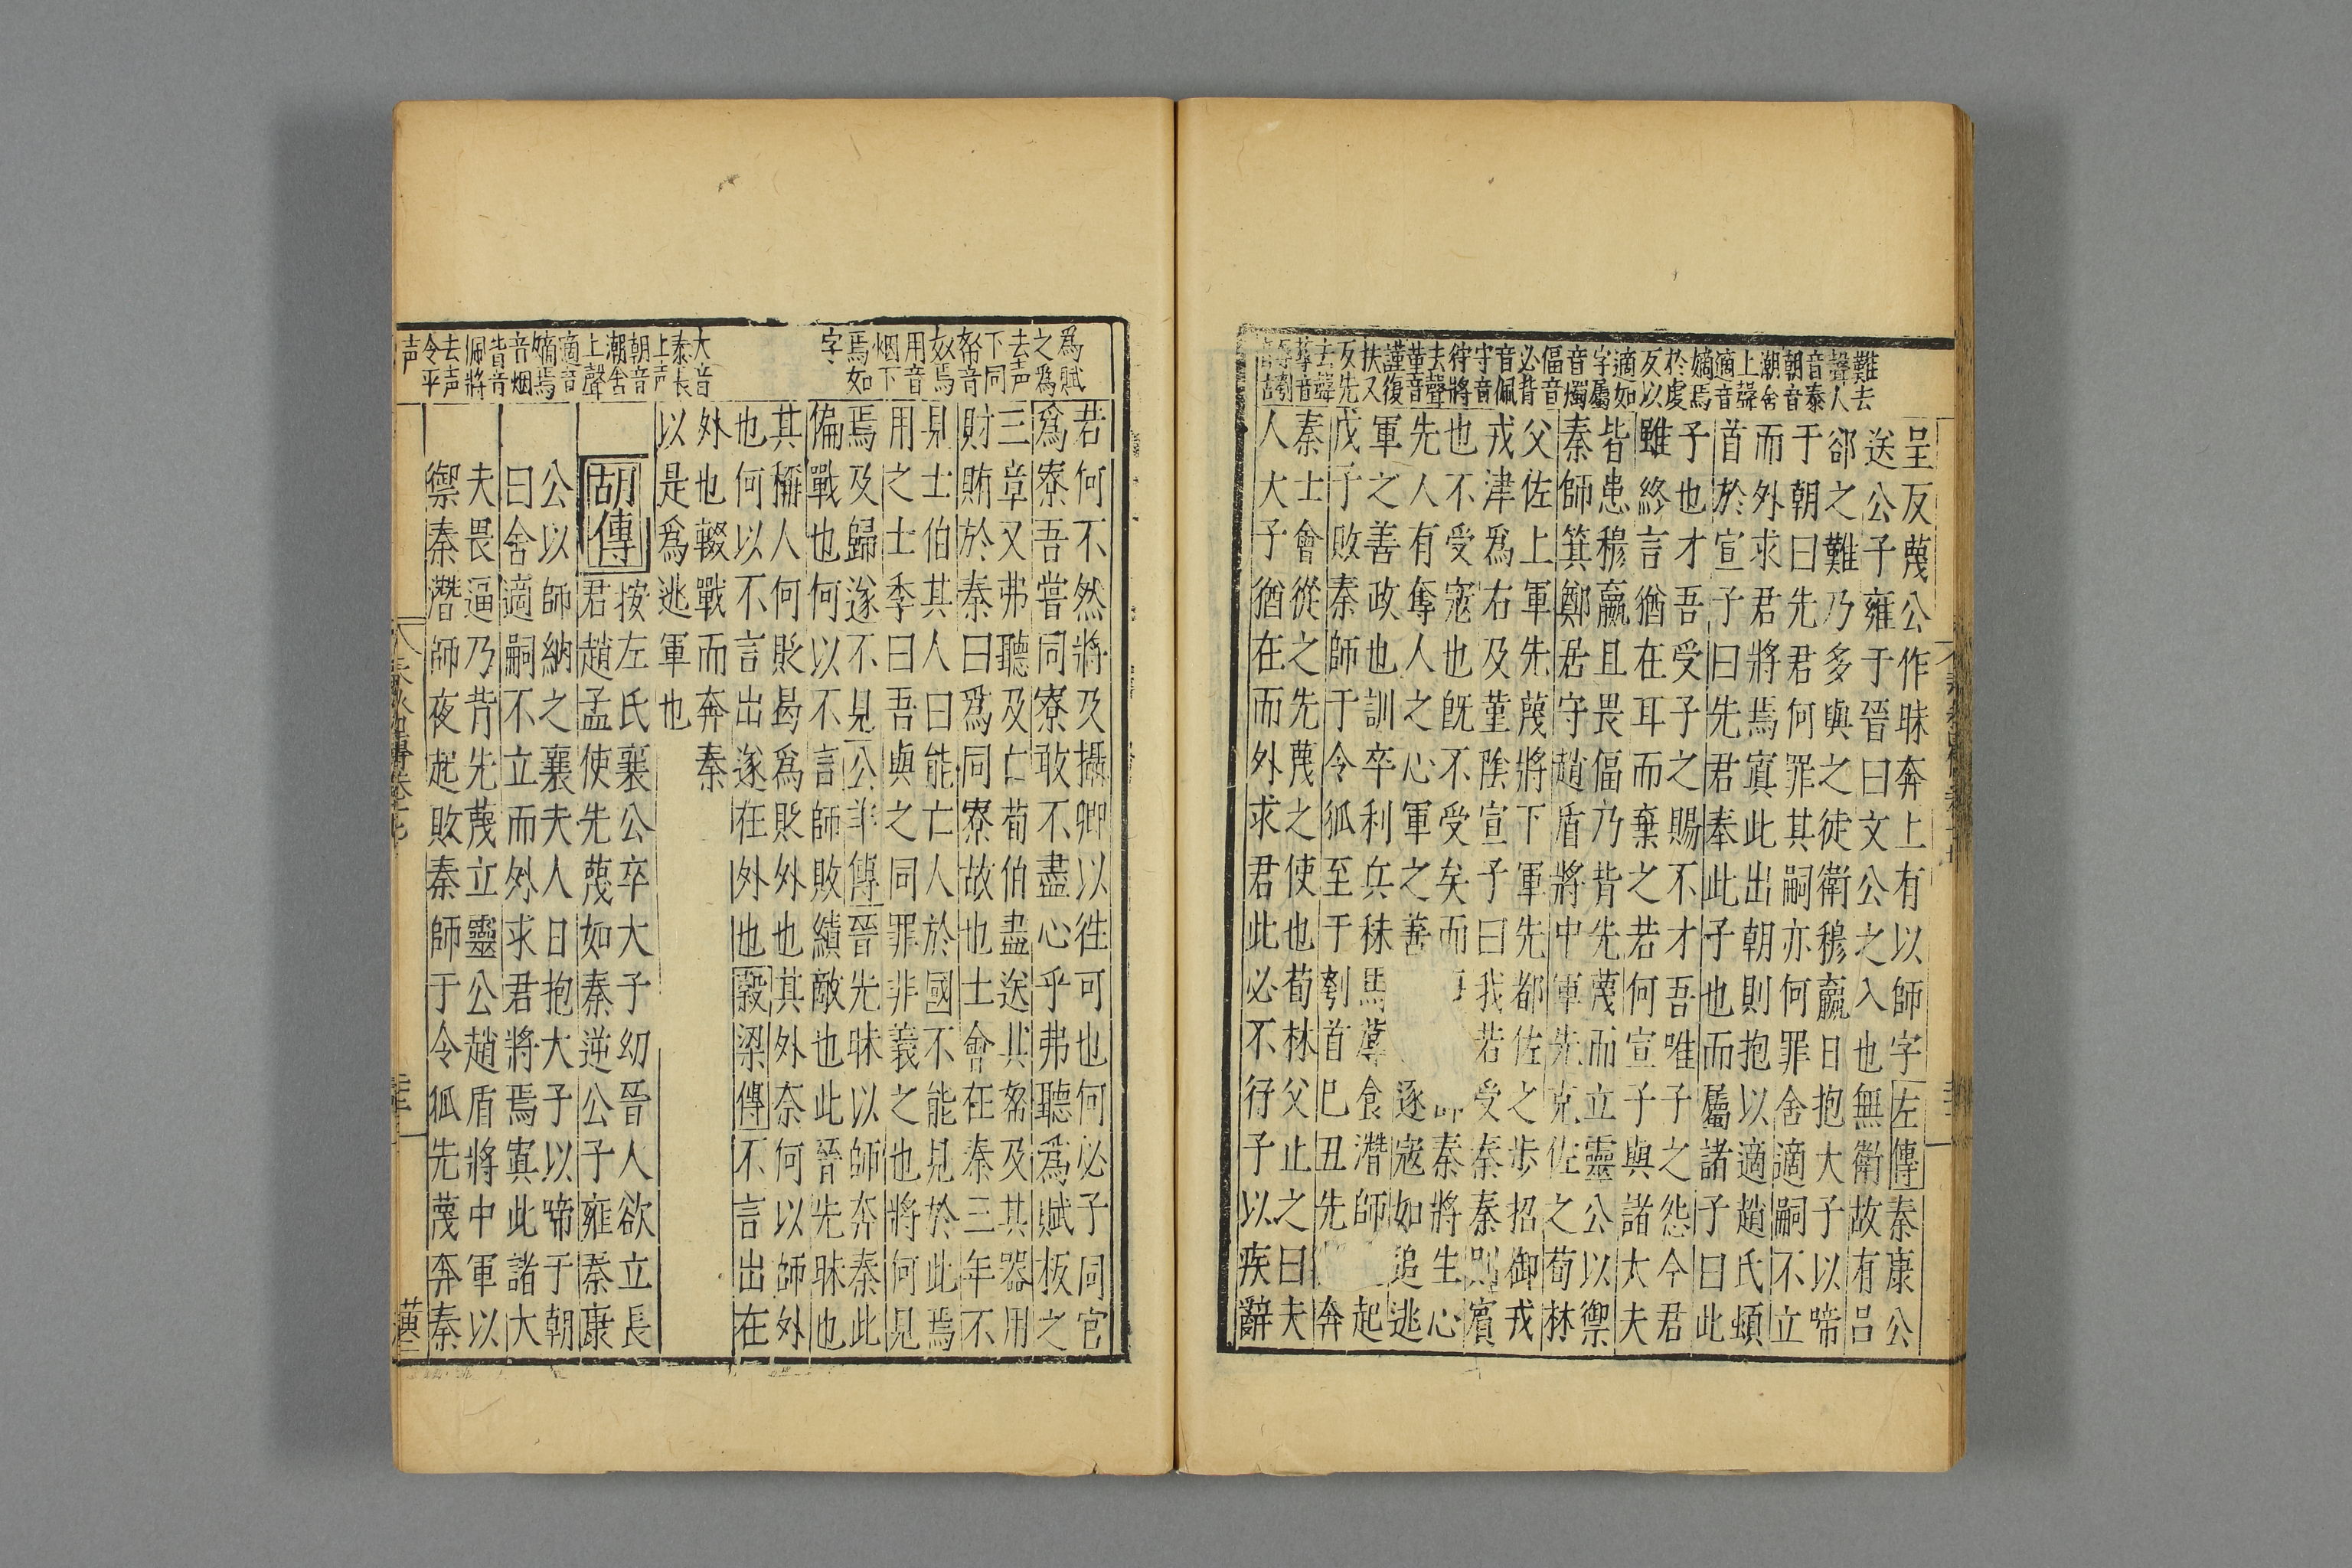 難去
聲人
音泰
朝音
潮舍
上聲
適音
嫡焉
於虔
反以
適如
字屬
音燭
偪音
必背
音佩
守音
狩將
去聲
董音
謹復
扶又
反先
去聲
蓐音
辱刳
呈反蔑公作昧奔上有以師字左傳秦康公
送公子雍于晉曰文公之入也無衛故有呂
郤之難乃多與之徒衛穆嬴日抱大子以啼
于朝曰先君何罪其嗣亦何罪舍適嗣不立
而外求君將焉寘此出朝則抱以適趙氏頓
首於宣子曰先君奉此子也而屬諸子曰此
子也才吾受子之賜不才吾唯子之怨今君
雖終言猶在耳而棄之若何宣子與諸大夫
皆患穆嬴且畏偪乃背先蔑而立靈公以禦
秦師箕鄭居守趙盾將中軍先克佐之荀林
父佐上軍先蔑將下軍先都佐之步招御戎
戎津爲右及菫陰宣子曰我若受秦秦則賓
也不受寇也旣不受矣而師秦將生心
先人有奪人之心軍之善逐寇如追逃
軍之善政也訓卒利兵秣馬蓐食潛師起
戊子敗秦師于令狐至于刳首巳丑先奔
秦士會從之先蔑之使也荀林父止之曰夫
人大子猶在而外求君此必不行子以疾辭
爲賦
之爲
去声
下同
帑音
奴焉
用音
烟下
焉如
字
大音
泰長
上声
朝音
潮舍
上聲
適音
嫡焉
音烟
背音
佩將
去声
令平
声
若何不然將及攝卿以往可也何必子同官
爲寮吾嘗同寮敢不盡心乎弗聽爲賦板之
三章又弗聽及亡荀伯盡送其帑及其器用
財賄於秦曰爲同寮故也士會在秦三年不
見士伯其人曰能亡人於國不能見於此焉
用之士季曰吾與之同罪非義之也將何見
焉及歸遂不見公羊傳晉先昧以師奔秦此
偏戰也何以不言師敗績敵也此晉先昧也
其稱人何貶曷爲貶外也其外奈何以師外
也何以不言出遂在外也穀梁傳不言出在
外也輟戰而奔秦
以是爲逃軍也
胡傳
按左氏襄公卒大子幼晉人欲立長
君趙孟使先蔑如秦逆公子雍秦康
公以師納之襄夫人日抱大子以啼于朝
曰舍適嗣不立而外求君將焉寘此諸大
夫畏逼乃背先蔑立靈公趙盾將中軍以
禦秦潛師夜起敗秦師于令狐先蔑奔秦